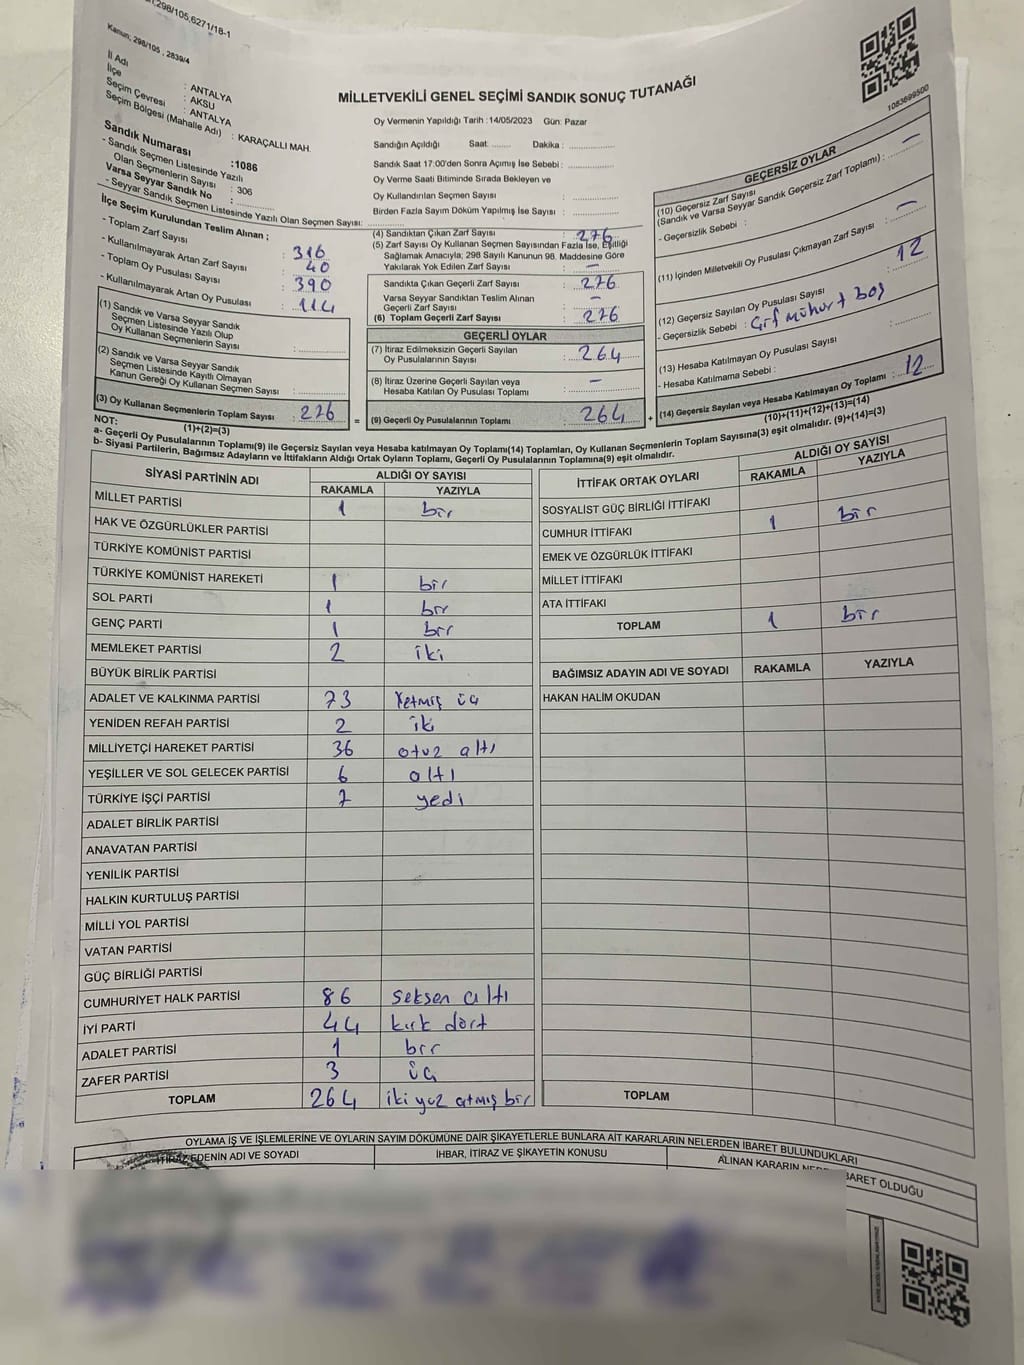 298/105,6271/18-1
Kanun, 298/105 , 2839/4
İl Adı : ANTALYA
İlçe : AKSU
Seçim Çevresi : ANTALYA
Seçim Bölgesi (Mahalle Adı) : KARAÇALLI MAH.
Sandık Numarası :1086
- Sandık Seçmen Listesinde Yazılı
Olan Seçmenlerin Sayısı : 306
Varsa Seyyar Sandık No :
- Seyyar Sandık Seçmen Listesinde Yazılı Olan Seçmen Sayısı:
İlçe Seçim Kurulundan Teslim Alınan ;
- Toplam Zarf Sayısı : 316
- Kullanılmayarak Artan Zarf Sayısı : 40
- Toplam Oy Pusulası Sayısı : 390
- Kullanılmayarak Artan Oy Pusulası : 114
(1) Sandık ve Varsa Seyyar Sandık
Seçmen Listesinde Yazılı Olup
Oy Kullanan Seçmenlerin Sayısı :
(2) Sandık ve Varsa Seyyar Sandık
Seçmen Listesinde Kayıtlı Olmayan
Kanun Gereği Oy Kullanan Seçmen Sayısı :
(3) Oy Kullanan Seçmenlerin Toplam Sayısı : 276
(1)+(2)=(3)
MİLLETVEKİLİ GENEL SEÇİMİ SANDIK SONUÇ TUTANAĞI
Oy Vermenin Yapıldığı Tarih :14/05/2023 Gün: Pazar
Sandığın Açıldığı Saat: Dakika :
Sandık Saat 17:00'den Sonra Açımış İse Sebebi :
Oy Verme Saati Bitiminde Sırada Bekleyen ve
Oy Kullandırılan Seçmen Sayısı :
Birden Fazla Sayım Döküm Yapılmış İse Sayısı :
(4) Sandıktan Çıkan Zarf Sayısı : 276
(5) Zarf Sayısı Oy Kullanan Seçmen Sayısından Fazla İse, Eşitliği
Sağlamak Amacıyla; 298 Sayılı Kanunun 98. Maddesine Göre
Yakılarak Yok Edilen Zarf Sayısı : —
Sandıkta Çıkan Geçerli Zarf Sayısı : 276
Varsa Seyyar Sandıktan Teslim Alınan
Geçerli Zarf Sayısı : —
(6) Toplam Geçerli Zarf Sayısı : 276
GEÇERLİ OYLAR
(7) İtiraz Edilmeksizin Geçerli Sayılan
Oy Pusulalarının Sayısı : 264
(8) İtiraz Üzerine Geçerli Sayılan veya
Hesaba Katılan Oy Pusulası Toplamı : —
= (9) Geçerli Oy Pusulalarının Toplamı : 264 +
1083699500
GEÇERSİZ OYLAR
(10) Geçersiz Zarf Sayısı
(Sandık ve Varsa Seyyar Sandık Geçersiz Zarf Toplamı) : —
- Geçersizlik Sebebi :
(11) İçinden Milletvekili Oy Pusulası Çıkmayan Zarf Sayısı : —
(12) Geçersiz Sayılan Oy Pusulası Sayısı : 12
- Geçersizlik Sebebi : Çift mühürt boş
(13) Hesaba Katılmayan Oy Pusulası Sayısı :
- Hesaba Katılmama Sebebi :
(14) Geçersiz Sayılan veya Hesaba Katılmayan Oy Toplamı : 12
(10)+(11)+(12)+(13)=(14)
NOT:
a- Geçerli Oy Pusulalarının Toplamı(9) ile Geçersiz Sayılan veya Hesaba katılmayan Oy Toplamı(14) Toplamları, Oy Kullanan Seçmenlerin Toplam Sayısına(3) eşit olmalıdır. (9)+(14)=(3)
b- Siyasi Partilerin, Bağımsız Adayların ve İttifakların Aldığı Ortak Oyların Toplamı, Geçerli Oy Pusulalarının Toplamına(9) eşit olmalıdır.
SİYASİ PARTİNİN ADI ALDIĞI OY SAYISI
RAKAMLA YAZIYLA
MİLLET PARTİSİ 1 bir
HAK VE ÖZGÜRLÜKLER PARTİSİ
TÜRKİYE KOMÜNİST PARTİSİ
TÜRKİYE KOMÜNİST HAREKETİ 1 bir
SOL PARTİ 1 bir
GENÇ PARTİ 1 bir
MEMLEKET PARTİSİ 2 iki
BÜYÜK BİRLİK PARTİSİ
ADALET VE KALKINMA PARTİSİ 73 Yetmiş üç
YENİDEN REFAH PARTİSİ 2 iki
MİLLİYETÇİ HAREKET PARTİSİ 36 otuz altı
YEŞİLLER VE SOL GELECEK PARTİSİ 6 altı
TÜRKİYE İŞÇİ PARTİSİ 7 yedi
ADALET BİRLİK PARTİSİ
ANAVATAN PARTİSİ
YENİLİK PARTİSİ
HALKIN KURTULUŞ PARTİSİ
MİLLİ YOL PARTİSİ
VATAN PARTİSİ
GÜÇ BİRLİĞİ PARTİSİ
CUMHURİYET HALK PARTİSİ 86 seksen altı
İYİ PARTİ 44 kırk dört
ADALET PARTİSİ 1 bir
ZAFER PARTİSİ 3 üç
TOPLAM 264 iki yüz atmış bir
İTTİFAK ORTAK OYLARI ALDIĞI OY SAYISI
RAKAMLA YAZIYLA
SOSYALİST GÜÇ BİRLİĞİ İTTİFAKI
CUMHUR İTTİFAKI 1 bir
EMEK VE ÖZGÜRLÜK İTTİFAKI
MİLLET İTTİFAKI
ATA İTTİFAKI
TOPLAM 1 bir
BAĞIMSIZ ADAYIN ADI VE SOYADI RAKAMLA YAZIYLA
HAKAN HALİM OKUDAN
TOPLAM
OYLAMA İŞ VE İŞLEMLERİNE VE OYLARIN SAYIM DÖKÜMÜNE DAİR ŞİKAYETLERLE BUNLARA AİT KARARLARIN NELERDEN İBARET BULUNDUKLARI
İTİRAZ EDENİN ADI VE SOYADI İHBAR, İTİRAZ VE ŞİKAYETİN KONUSU ALINAN KARARIN İBARET OLDUĞU